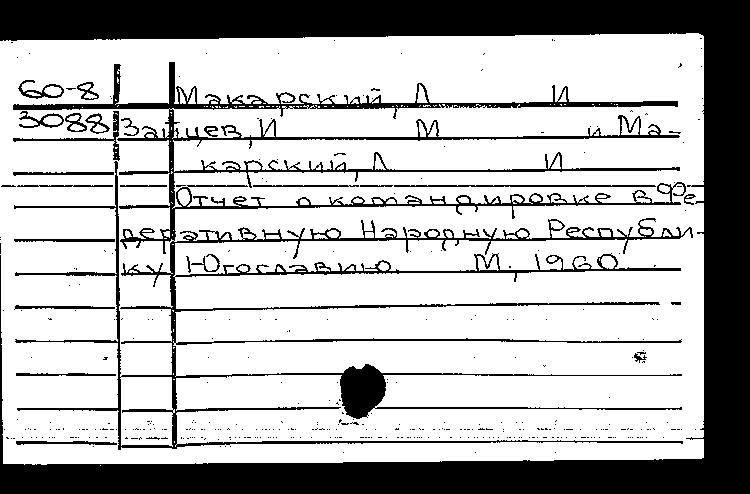 60-8 Макарский, Л И
3088 Зайцев, И М и Ма-
карский, Л И
Отчет о командировке в Фе-
деративную Народную Республи-
ку Югославию. М., 1960